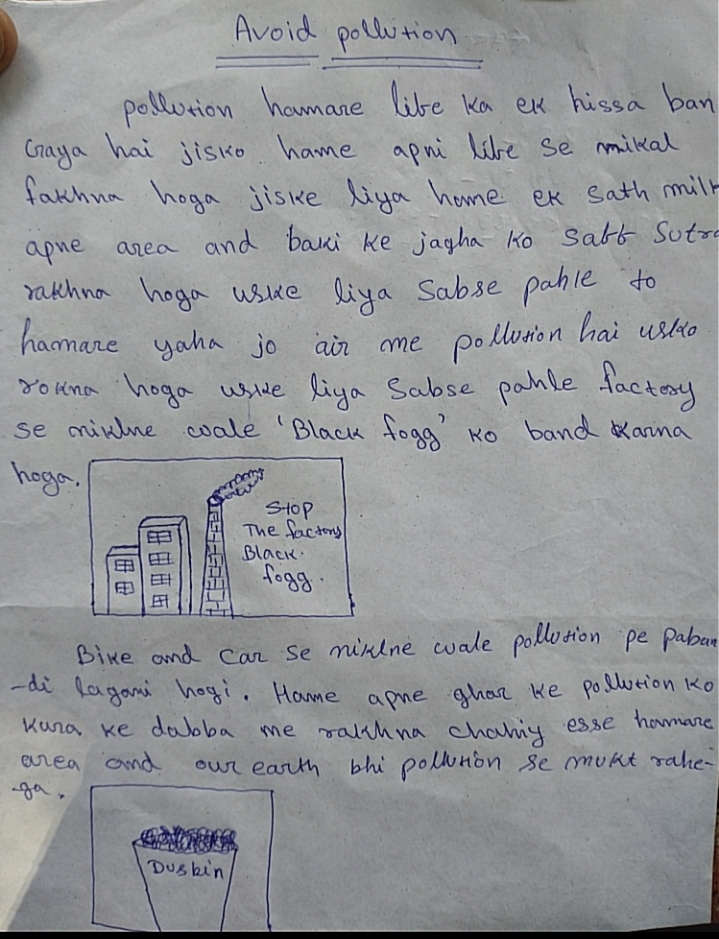 Avoid pollution
pollution hamare libe ka ek hissa ban
Graya hai jisko hame apni libe se mikal
fakhna hoga jiske liya hame ek sath milk
apne area and baki ke jagha ko sabb sutra
rakhna hoga uske liya sabse pahle to
hamare yaha jo air me pollution hai usko
rokna hoga uske liya sabse pahle factory
se niklne wale 'Black fogg' ko band karna
hoga.
Stop
The factory
Black.
fogg.
Bike and car se niklne wale pollution pe paban
-di lagani hogi. Hame apne ghar ke pollution ko
kura ke dabba me rakhna chahiy esse hamare
area and our earth bhi pollution se mukt rahe-
-ga.
Dusbin